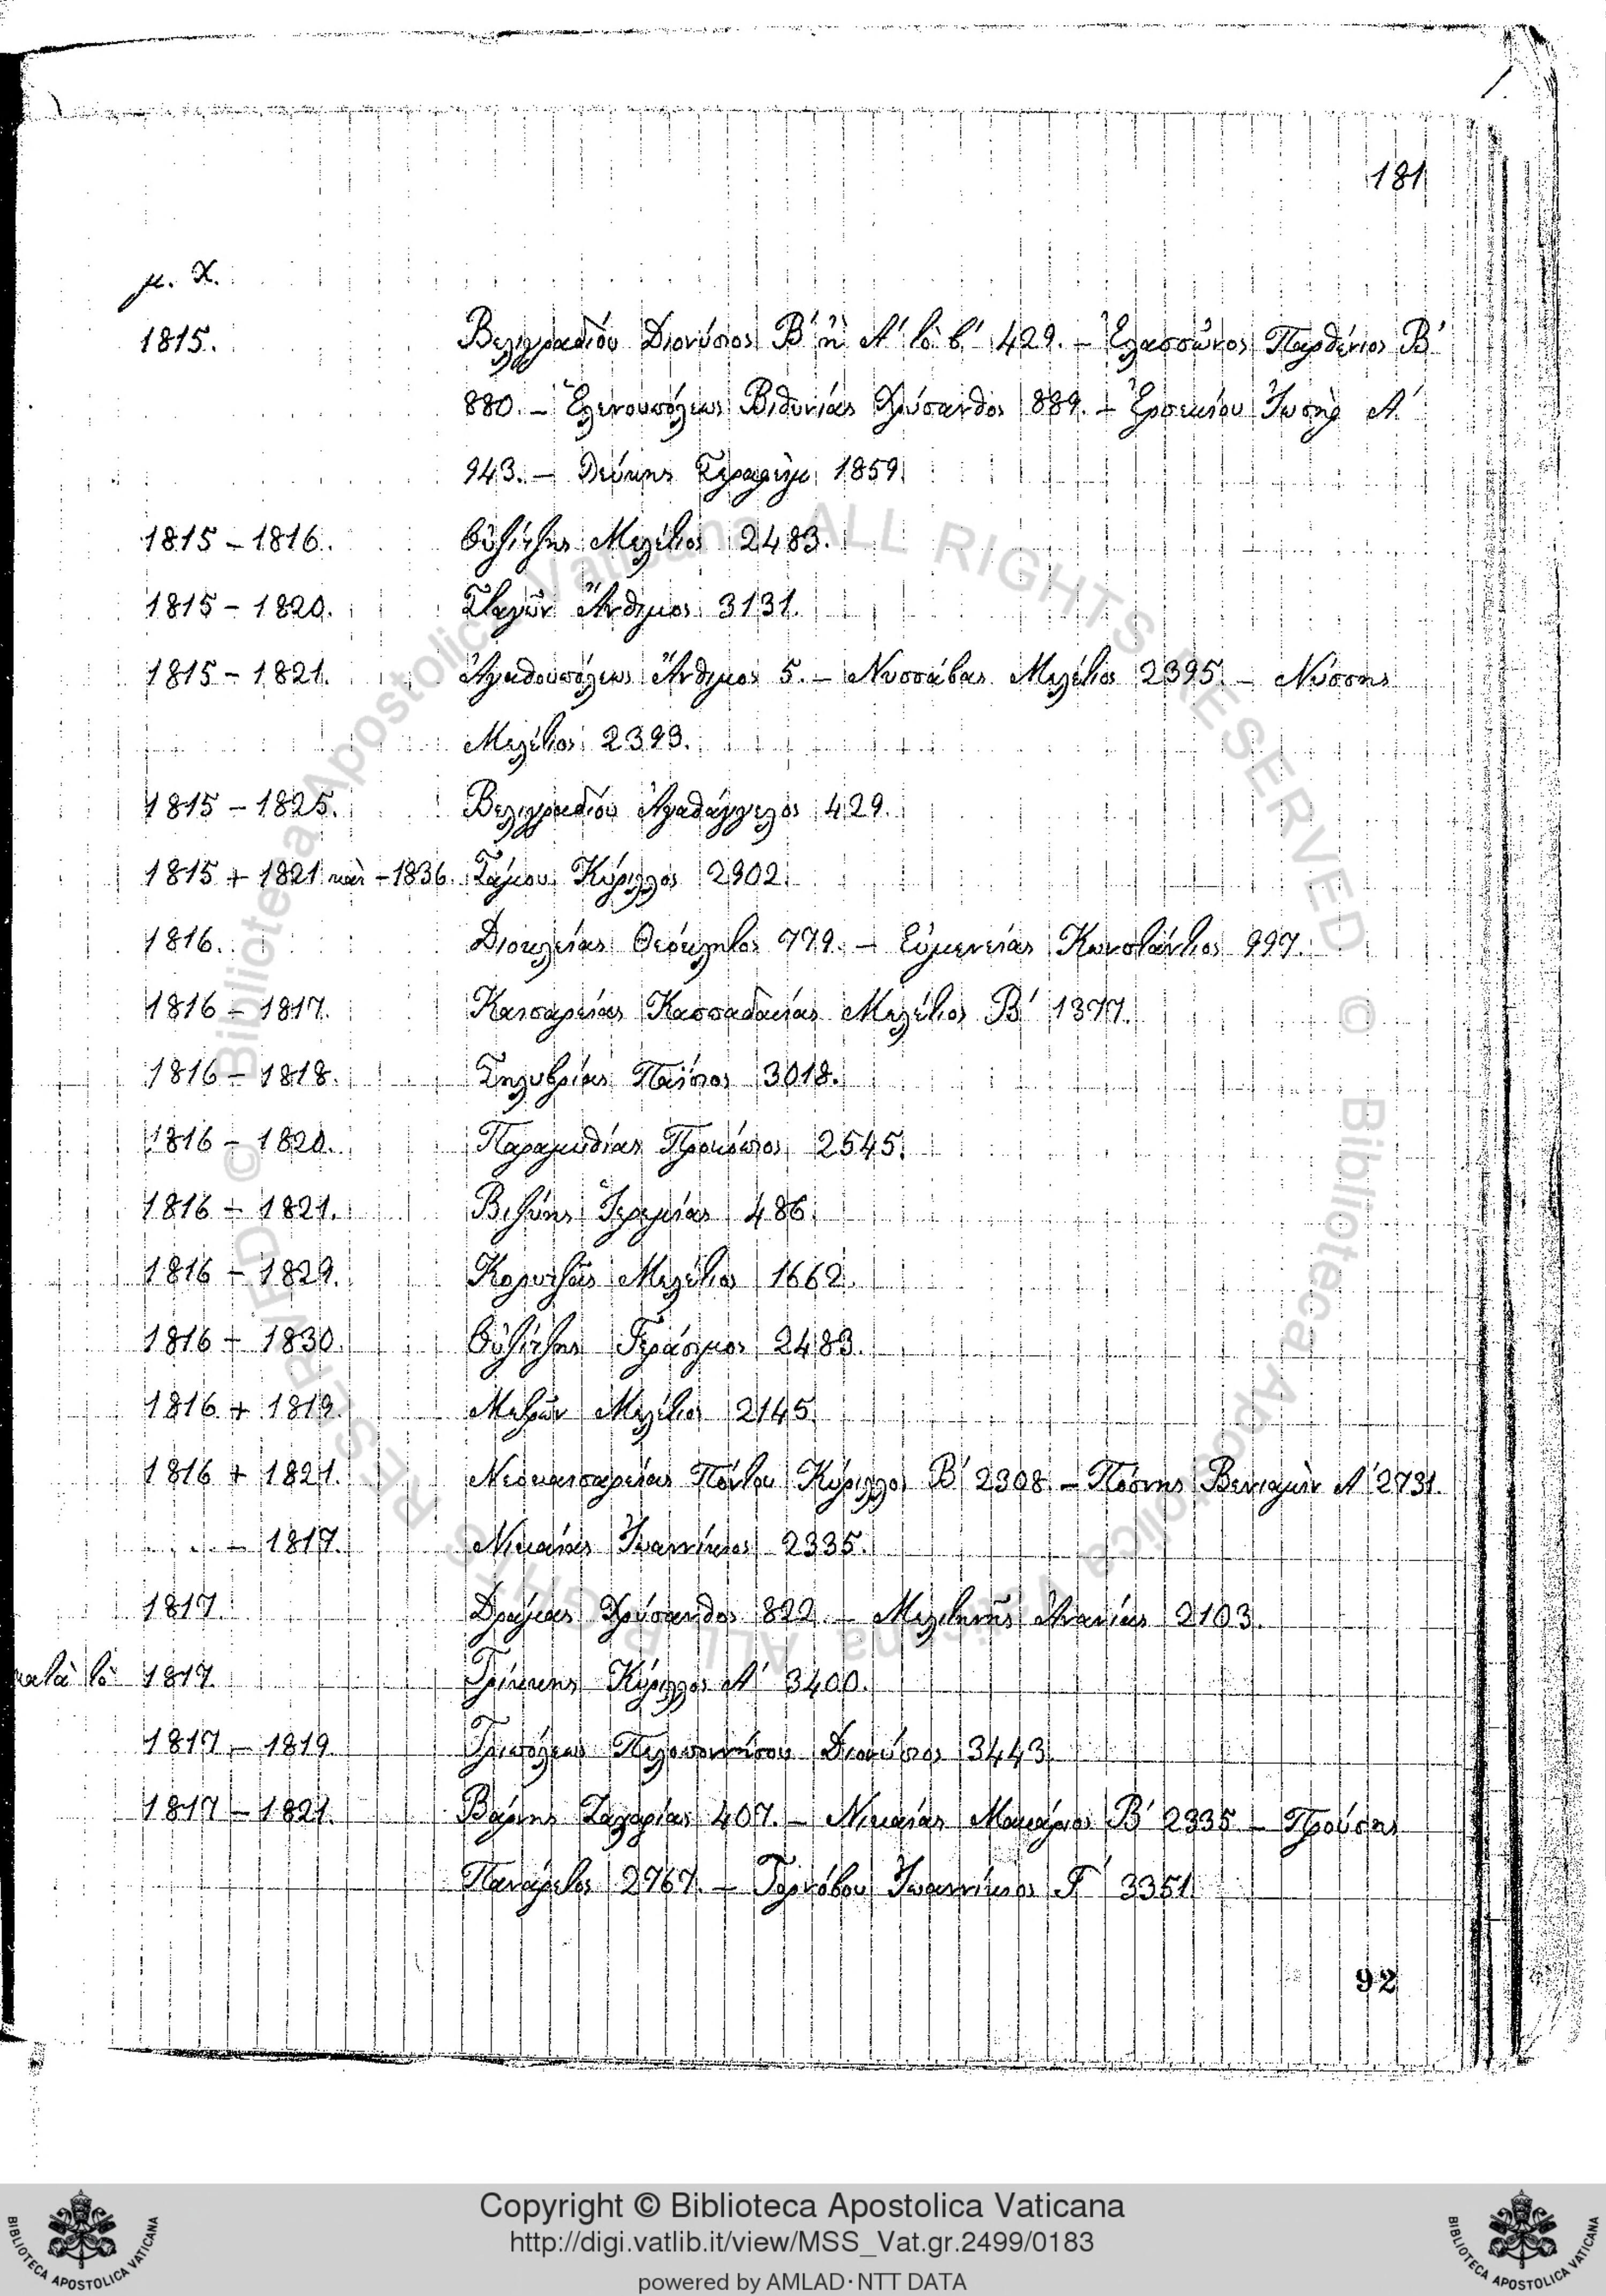 181
μ. Χ.
1815. Βελιγραδίου Διονύσιος Β΄ ἢ Α΄ τὸ β΄ 429. – Ἐλασσῶνος Παρθένιος Β΄
880. – Ἑλενουπόλεως Βιθυνίας Χρύσανθος 889. – Ἐρσεκίου Ἰωσὴφ Α΄
943. – Λεύκης Σεραφεὶμ 1859.
1815 – 1816. Οὐζίτζης Μελέτιος 2483.
1815 – 1820. Σταγῶν Ἄνθιμος 3131.
1815 – 1821. Ἀγαθουπόλεως Ἄνθιμος 5. – Νυσσάβας Μελέτιος 2395. – Νύσσης
Μελέτιος 2393.
1815 – 1825. Βελιγραδίου Ἀγαθάγγελος 429.
1815 + 1821 καὶ – 1836. Σάμου Κύριλλος 2902.
1816. Διοκλείας Θεόκλητος 779. – Εὐμενείας Κωνστάντιος 997.
1816 – 1817. Καισαρείας Καππαδοκίας Μελέτιος Β΄ 1377.
1816 – 1818. Σηλυβρίας Παΐσιος 3018.
1816 – 1820. Παραμυθίας Προκόπιος 2545.
1816 – 1821. Βιζύης Ἱερεμίας 486.
1816 – 1829. Κορυτζᾶς Μελέτιος 1662.
1816 – 1830. Οὐζίτζης Γεράσιμος 2483.
1816 + 1819. Μετρῶν Μελέτιος 2145.
1816 + 1821. Νεοκαισαρείας Πόντου Κύριλλος Β΄ 2308. – Πόσνης Βενιαμὶν Α΄ 2731.
– 1817. Νικαίας Ἰωαννίκιος 2335.
1817. Δράμας Χρύσανθος 822. – Μελιτηνῆς Ἀνανίας 2103.
κατὰ τὸ 1817. Τρίκκης Κύριλλος Α΄ 3400.
1817 – 1819. Τριπόλεως Πελοποννήσου Διονύσιος 3443.
1817 – 1821. Βάρνης Ζαχαρίας 407. – Νικαίας Μακάριος Β΄ 2335 – Προύσης
Πανάρετος 2767. – Τορνόβου Ἰωαννίκιος Γ΄ 3351.
92
Copyright © Biblioteca Apostolica Vaticana
http://digi.vatlib.it/view/MSS_Vat.gr.2499/0183
powered by AMLAD·NTT DATA
BIBLIOTECA APOSTOLICA VATICANA
BIBLIOTECA APOSTOLICA VATICANA